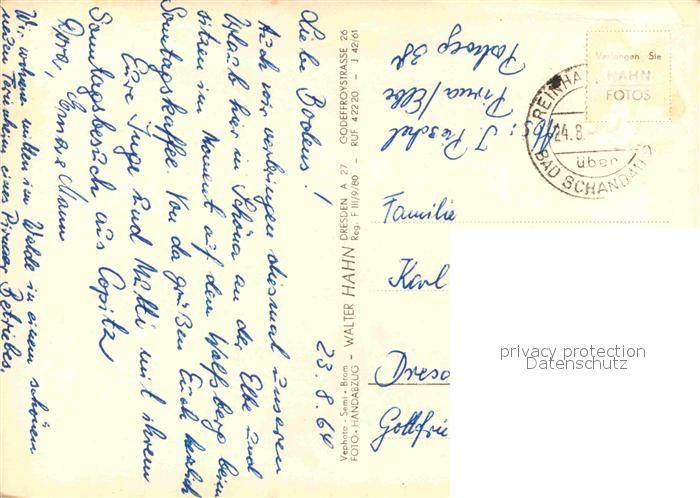 23.8.64
Liebe Bodens!
Auch wir verbringen diesmal unseren
Urlaub hier in Schöna an der Elbe und
sitzen im Moment auf dem Wolfsberg beim
Sonntagskaffee. Von da grüßen Euch herzlich
Eure Inge und Mutti mit ihrem
Sonntagsbesuch aus Copitz
Dora,
Wir wohnen mitten im Walde in einem schönen
neuen Ferienheim eines Pirnaer Betriebes.
Vephoto - Semi - Brom
FOTO-HANDABZUG - WALTER HAHN DRESDEN A 27 GODEFFROYSTRASSE 26
Reg. F III/9/80 - RUF 42220 - J 42/61
Abs.: J. Peschel
Pirna/Elbe
Verlangen Sie
HAHN
FOTOS
REINHA
24.8.
über
BAD SCHANDAU 2
Familie
Karl
Dresd
Gottfrie
privacy protection
Datenschutz